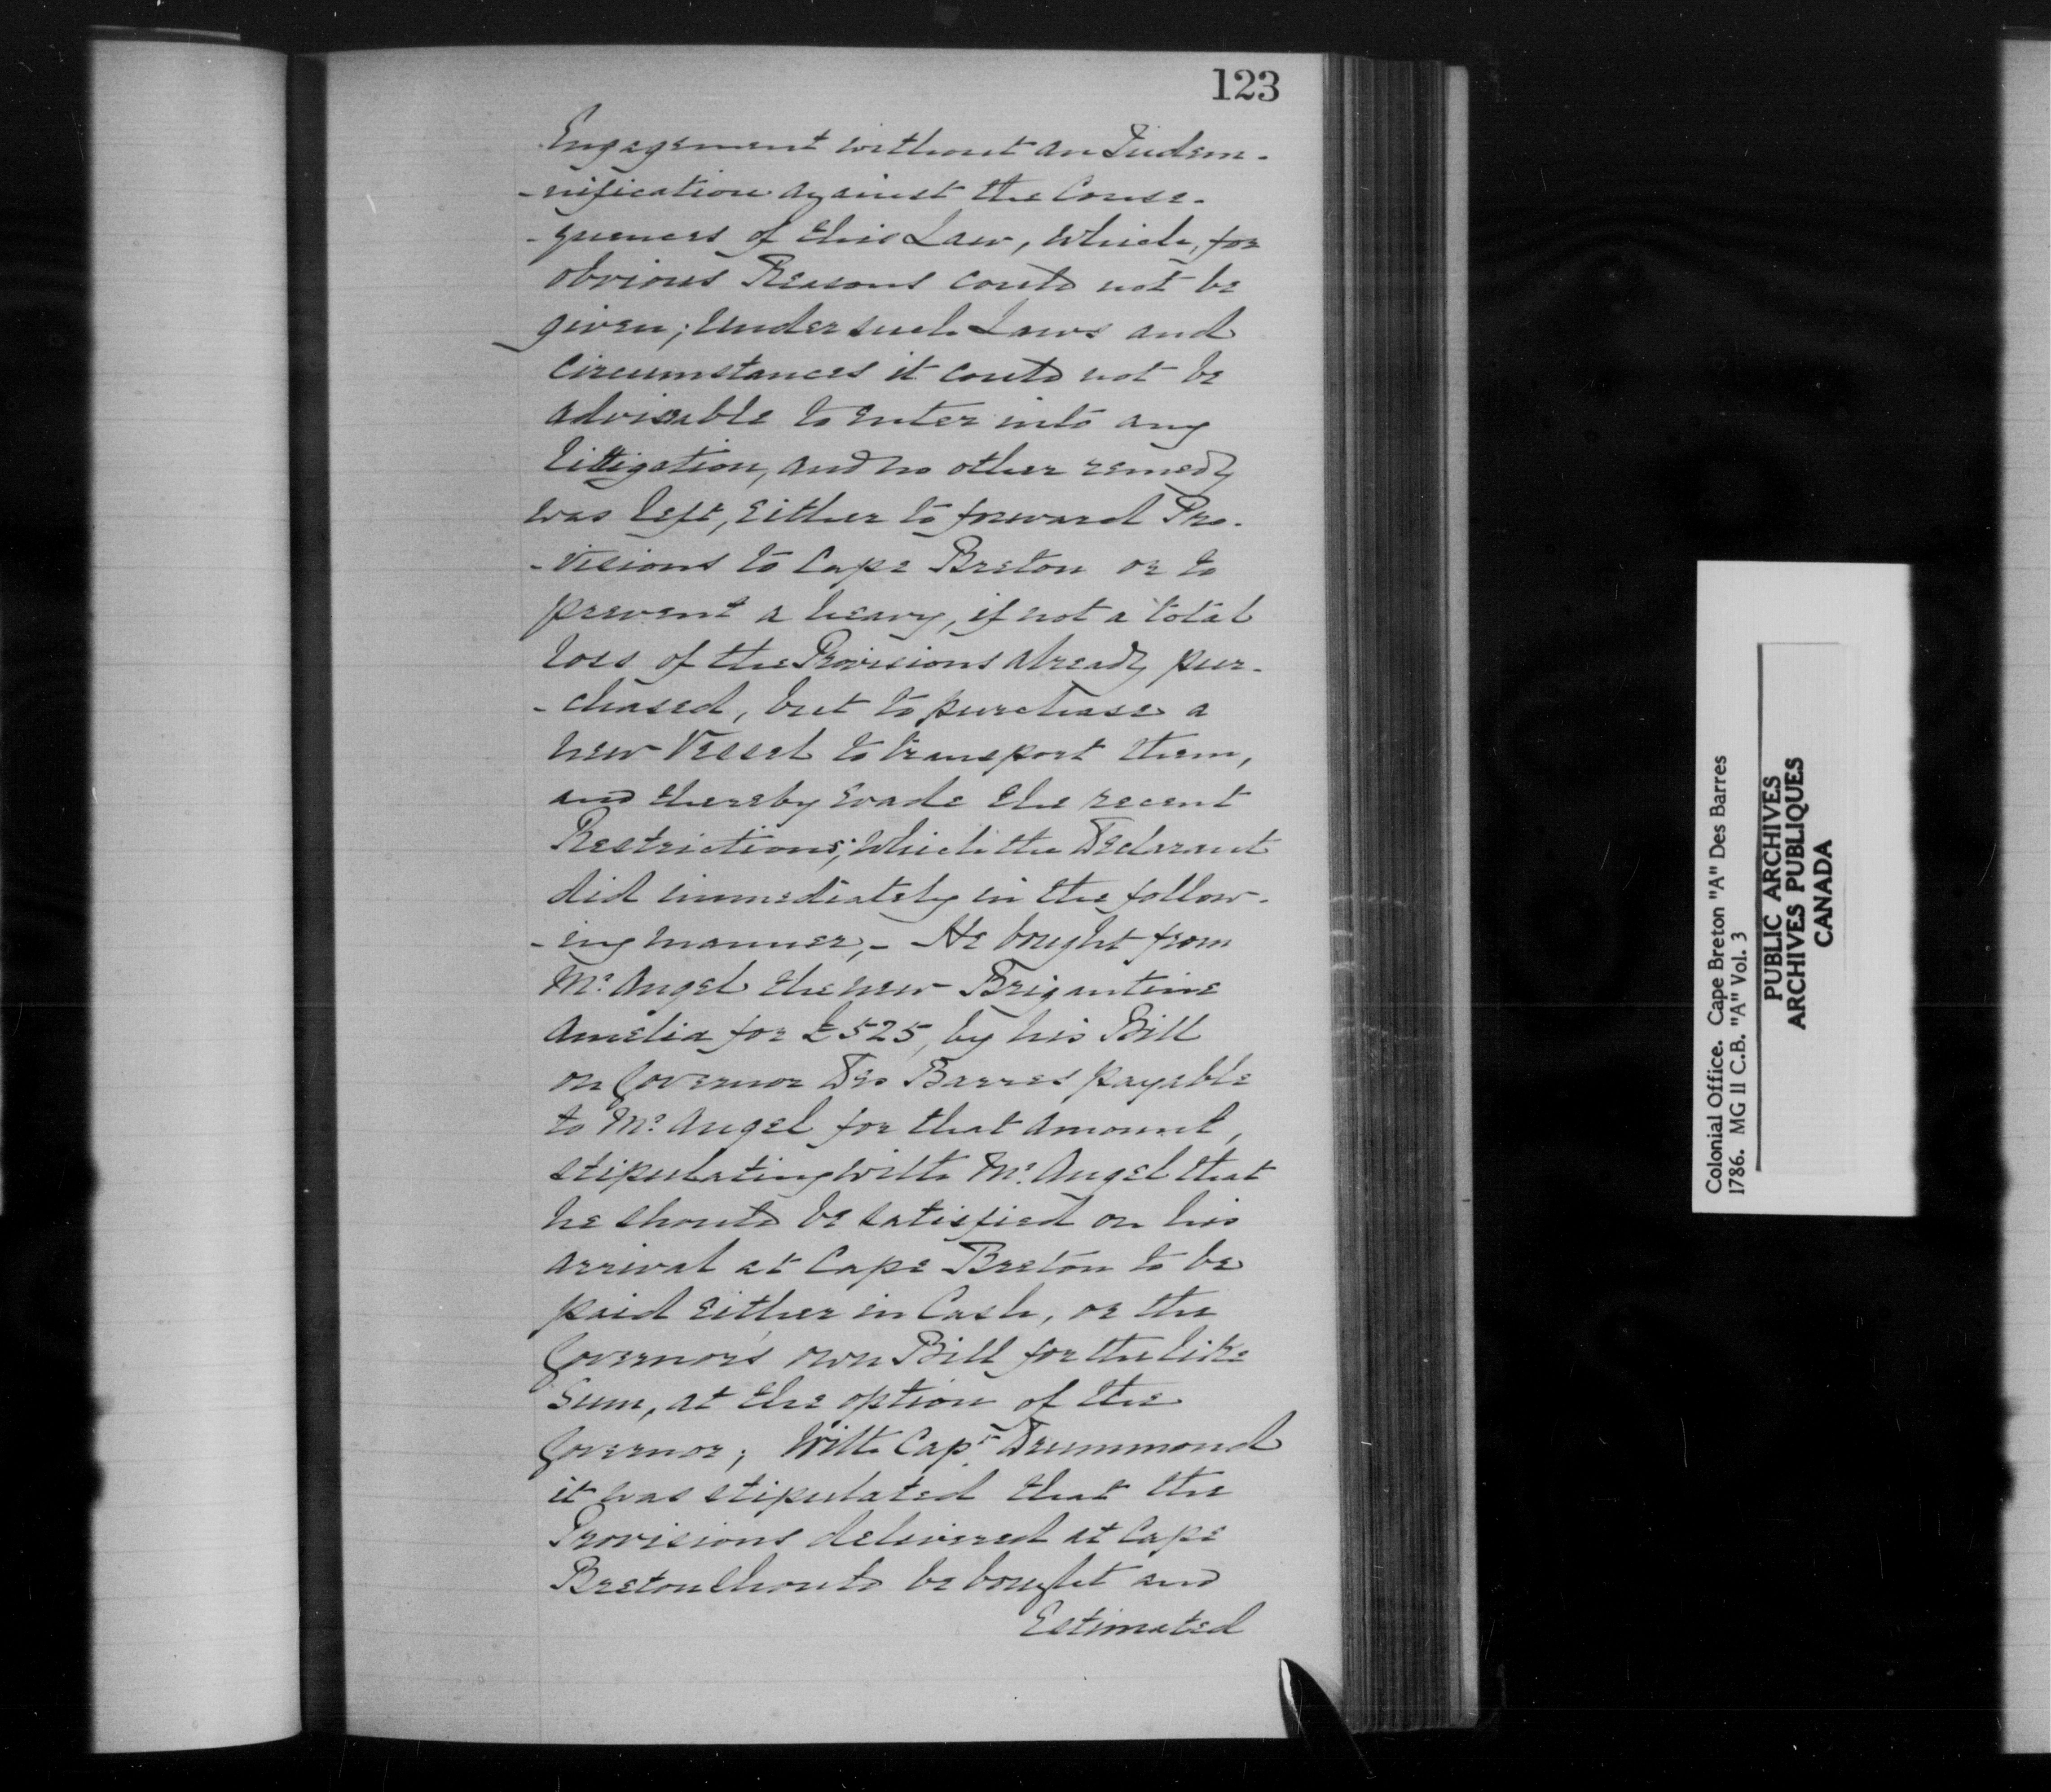 123
Engagement without an Indem-
-nification against the Conse-
-quences of this Law, which, for
obvious Reasons could not be
given; under such Laws and
Circumstances it could not be
advisable to enter into any
Littigation, and no other remedy
was left, either to forward Pro-
-visions to Cape Breton or to
prevent a heavy, if not a total
loss of the Provisions already pur-
-chased, but to purchase a
new Vessel to transport them,
and thereby evade the recent
Restrictions; which the Declarant
did immediately in the follow-
-ing manner,- He bought from
Mr. Angel the new Brigantine
Amelia for £525, by his Bill
on Governor Des Barres payable
to Mr. Angel for that amount,
stipulating with Mr. Angel that
he should be satisfied on his
arrival at Cape Breton to be
paid either in Cash, or the
Governor's own Bill for the like
Sum, at the option of the
Governor; With Capt. Drummond
it was stipulated that the
Provisions delivered at Cape
Breton should be bought and
Estimated
Colonial Office. Cape Breton "A" Des Barres
1786. MG II C.B. "A" Vol. 3
PUBLIC ARCHIVES
ARCHIVES PUBLIQUES
CANADA